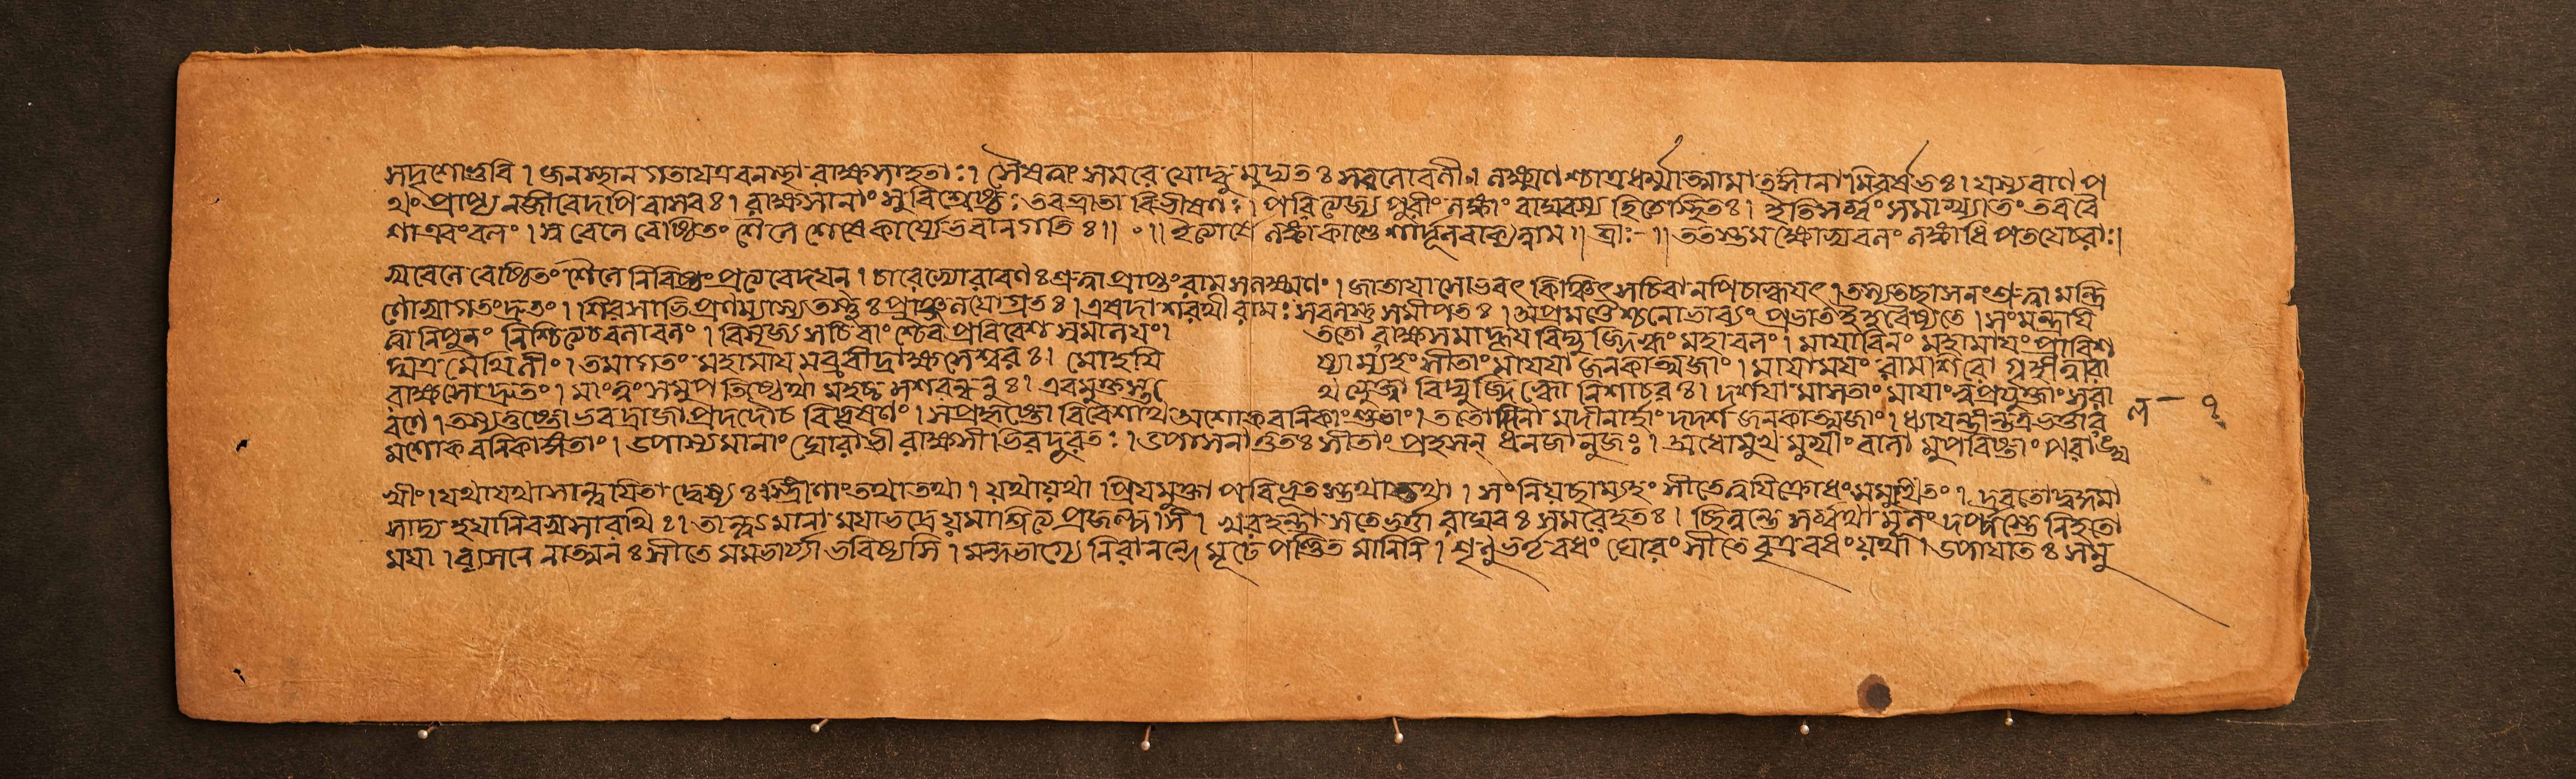 সদৃশোভুবি । জনস্থানগতাযত্রবনস্থা রাক্ষসাহতাঃ । সৈষত্বাং সমরে যোদ্ধুমুদ্যতঃ সবলোবলী । লক্ষ্মণশ্চাত্রধর্ম্মাত্মামাতঙ্গানামিবর্ষভঃ । যস্যবাণপ
থং প্রাপ্য নজীবেদপি বাসবঃ । রাক্ষসানাং সুবিশ্রেষ্ঠঃ তবভ্রাতা বিভীষণঃ । পরিত্যজ্য পুরীং লঙ্কাং রাঘবস্য হিতেস্থিতঃ । ইতিসর্ব্বং সমাখ্যাতং তবৰৈ
শাএবংবলং । সুবেলে বেষ্ঠিতং শৈলে শেষেকার্য্যেভবানগতিঃ ॥ ০ ॥ ইত্যার্ষে লঙ্কাকাণ্ডে শার্দ্দূলবাক্যন্নাম ॥ ত্রাঃ- ॥ ততস্তমক্ষোভ্যবলং লঙ্কাধিপতযেচরাঃ ।
সুবেলে বেষ্ঠিতং শৈলে নিবিষ্টং প্রত্যবেদযন্ । চারেভ্যোরাবণঃ শ্রুত্বা প্রাপ্তং রামং সলক্ষ্মণং । জাতোযাসোভবৎ কিঞ্চিৎ সচিবানপিচাহ্বযৎ । তস্যতচ্ছাসনং শ্রুত্বা মন্ত্রি
ণোভ্যাগতংদ্রুতং । শিরসাভিপ্রণম্যাস্যতস্থুঃ প্রাঞ্জলযোগ্রতঃ । এষদাশরথী রামঃ সবলস্তু সমীপতঃ । অপ্রমত্তৈশ্চনোভাব্যং প্রভাতইহবেষ্যতে । সংমন্ত্র্যযি
ত্বা নিপুনং নিশ্চিত্যচবলাবলং । বিসৃজ্য সচিবাংশ্চৈব প্রবিবেশ স্বমালযং । ততো রাক্ষসমাহূয বিদ্যুজ্জিহ্বং মহাবলং । মাযাবিনং মহামাযং প্রাবিশ
দ্যত্র মৈথিলীং । তমাগতং মহামায মব্রবীদ্রাক্ষসেশ্বরঃ । মোহযি ষ্যাম্যহং সীতাং মাযযা জনকাত্মজাং । মাযামযং রামশিরো গৃহীত্বারা
রাক্ষসোদ্রুতং । মাংত্বং সমুপতিষ্ঠেথা মহচ্চ সশরন্ধনুঃ । এবমুক্তস্ত থেত্যুক্ত্বা বিদ্যুজ্জিহ্বো নিশাচরঃ । দর্শযামাসতাং মাযাং সুপ্রযুক্তাং সরা
বণে । তস্যতুষ্টোভবদ্রাজা প্রদদৌচ বিভূষণং । সপ্রহৃষ্টো বিবেশাথ অশোকবনিকাং শুভাং । ততোদীনামদীনার্হাং দদর্শ জনকাত্মজাং । ধ্যাযন্তীন্তত্রভর্ত্তার
মশোকবনিকাঙ্গতাং । উপাস্যমানাং ঘোরাভী রাক্ষসীভিরদূরতঃ । উপাসনাগ্রতঃ সীতাং প্রহসন্ ধনজানুজঃ । অধোমুখমুখীং বালা মুপবিষ্টাং পরাঙ্মু
খীং । যথাযথাসান্ত্বযিতা দ্বেষ্যঃ স্ত্রীণাং তথাতথা । যথাযথা প্রিযমুক্তা পরিভূতস্তথাতথা । সংনিযচ্ছাম্যহং সীতেত্বযিক্রোধংসমুত্থিতং । দ্রবতোদ্বঙ্গমা
সাদ্য হযানিবসুসারথিঃ । তান্ত্বংমানা মযাভদ্রে যমাশ্রিত্য প্রজল্পসি । খরহন্তা সতেভর্ত্তা রাঘবঃ সমরেহতঃ । ছিন্নন্তে সর্ব্বথামূলং দর্পস্তে নিহতো
মযা । ব্যসনে নাত্মনঃ সীতে মমভার্য্যা ভবিষ্যসি । মন্দভাগ্যে নিরানন্দে মূঢে পণ্ডিতমানিনি । শৃণু ভর্তৃবধং ঘোরং সীতে বৃত্রবধং যথা । উপাযাতঃ সমু